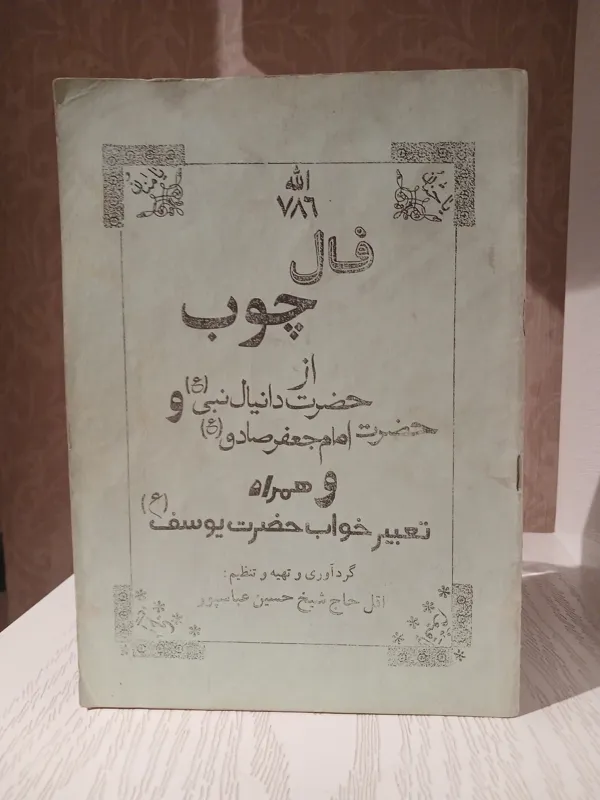 الله
۷۸۶
فال
چوب
از
حضرت دانیال نبی (ع) و
حضرت امام جعفر صادق (ع)
و همراه
تعبیر خواب حضرت یوسف (ع)
گردآوری و تهیه و تنظیم:
اقل حاج شیخ حسین عباسپور